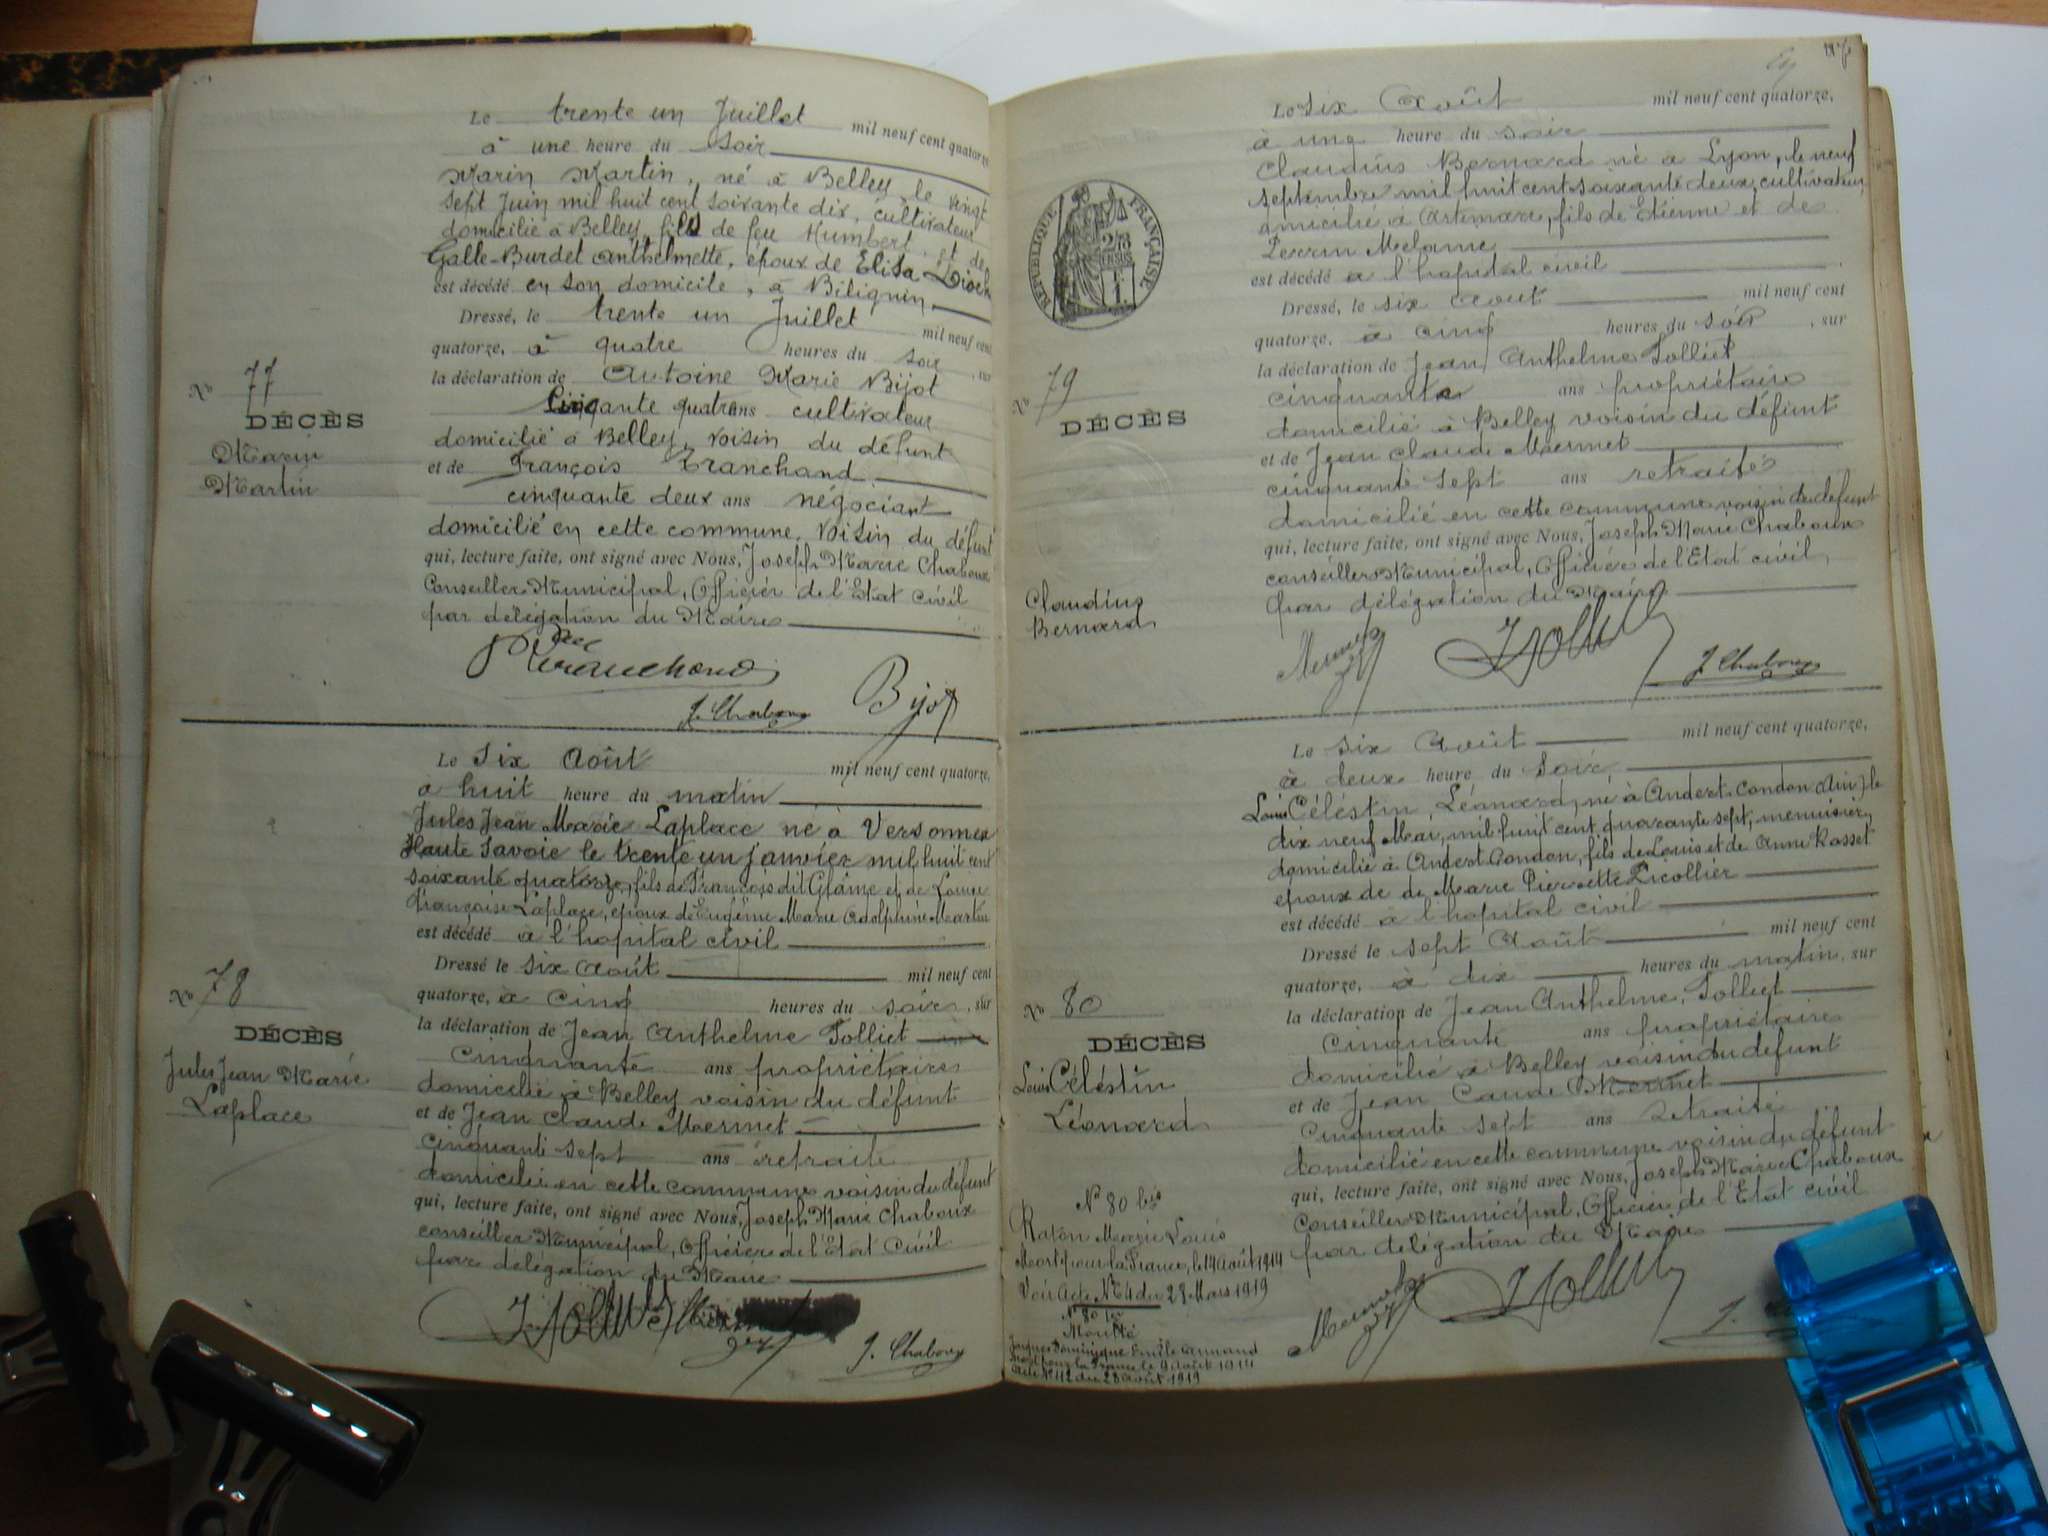 Le trente un Juillet mil neuf cent quatorze
à une heure du soir
Marin Martin, né à Belley, le vingt
sept Juin mil huit cent soixante dix, cultivateur
domicilié à Belley, fils de feu Humbert, et de
Galle-Burdet Anthelmette, époux de Elisa Dioch
est décédé en son domicile, à Billignin
Dressé, le trente un Juillet mil neuf cent
quatorze, à quatre heures du soir, sur
la déclaration de Antoine Marie Bijot
Cinquante quatre ans cultivateur
domicilié à Belley, voisin du défunt
et de François Tranchand
cinquante deux ans négociant
domicilié en cette commune, voisin du défunt
qui, lecture faite, ont signé avec Nous, Joseph Marie Chaboux
Conseiller Municipal, Officier de l'Etat civil
par délégation du Maire
Tranchand
J. Chaboux
Bijot
No 77
DÉCÈS
Marin
Martin
Le Six Août mil neuf cent quatorze,
à huit heure du matin
Jules Jean Marie Laplace né à Versonnex
Haute Savoie le trente un janvier mil huit cent
soixante quatorze, fils de François dit Glâme et de Louise
françoise Laplace, époux de Eugénie Marie Adolphine Martin
est décédé à l'hopital civil
Dressé le six Août mil neuf cent
quatorze, à cinq heures du soir, sur
la déclaration de Jean Anthelme Tolliet
cinquante ans propriétaire
domicilié à Belley voisin du défunt
et de Jean Claude Mermet
cinquante sept ans retraité
domicilié en cette commune voisin du défunt
qui, lecture faite, ont signé avec Nous, Joseph Marie Chaboux
conseiller Municipal, Officier de l'Etat Civil
par délégation du Maire
J. Chaboux
No 78
DÉCÈS
Jules Jean Marie
Laplace
187
Le six Août mil neuf cent quatorze,
à une heure du soir
Claudius Bernard né à Lyon, le neuf
septembre mil huit cent soixante deux, cultivateur
domicilié à Artemare, fils de Etienne et de
Perrin Melanie
est décédé à l'hopital civil
Dressé, le six Août mil neuf cent
quatorze, à cinq heures du soir, sur
la déclaration de Jean Anthelme Tolliet
cinquante ans propriétaire
domicilié à Belley voisin du défunt
et de Jean Claude Mermet
cinquante sept ans retraité
domicilié en cette commune voisin du défunt
qui, lecture faite, ont signé avec Nous, Joseph Marie Chaboux
conseiller Municipal, Officier de l'Etat civil,
par délégation du Maire
Mermet
J. Tolliet
J. Chaboux
RÉPUBLIQUE FRANÇAISE
No 79
DÉCÈS
Claudius
Bernard
Le six Août mil neuf cent quatorze,
à deux heure du soir
Louis Céléstin Léonard, né à Andert-Condon (Ain) le
dix neuf Mai, mil huit cent quarante sept, menuisier,
domicilié à Andert Condon, fils de Louis et de Anne Rosset
époux de de Marie Pierrette Picollier
est décédé à l'hopital civil
Dressé le sept Août mil neuf cent
quatorze, à dix heures du matin, sur
la déclaration de Jean Anthelme, Tolliet
Cinquante ans propriétaire
domicilié à Belley voisin du défunt
et de Jean Caude Mermet
Cinquante sept ans retraité
domicilié en cette commune voisin du défunt
qui, lecture faite, ont signé avec Nous, Joseph Marie Chaboux
Conseiller Municipal, Officier de l'Etat civil
par délégation du Maire
Mermet
J. Tolliet
No 80
DÉCÈS
Louis Céléstin
Léonard
N° 80 bis
Raton Marie Louis
Mort pour la France, le 19 Août 1914
Voir Acte N° 4 du 28 Mars 1919
N° 80 ter
Jacques Dominique Emile Armand
Mort pour la France le 9 Août 1914
Acte N° 112 du 28 Août 1919